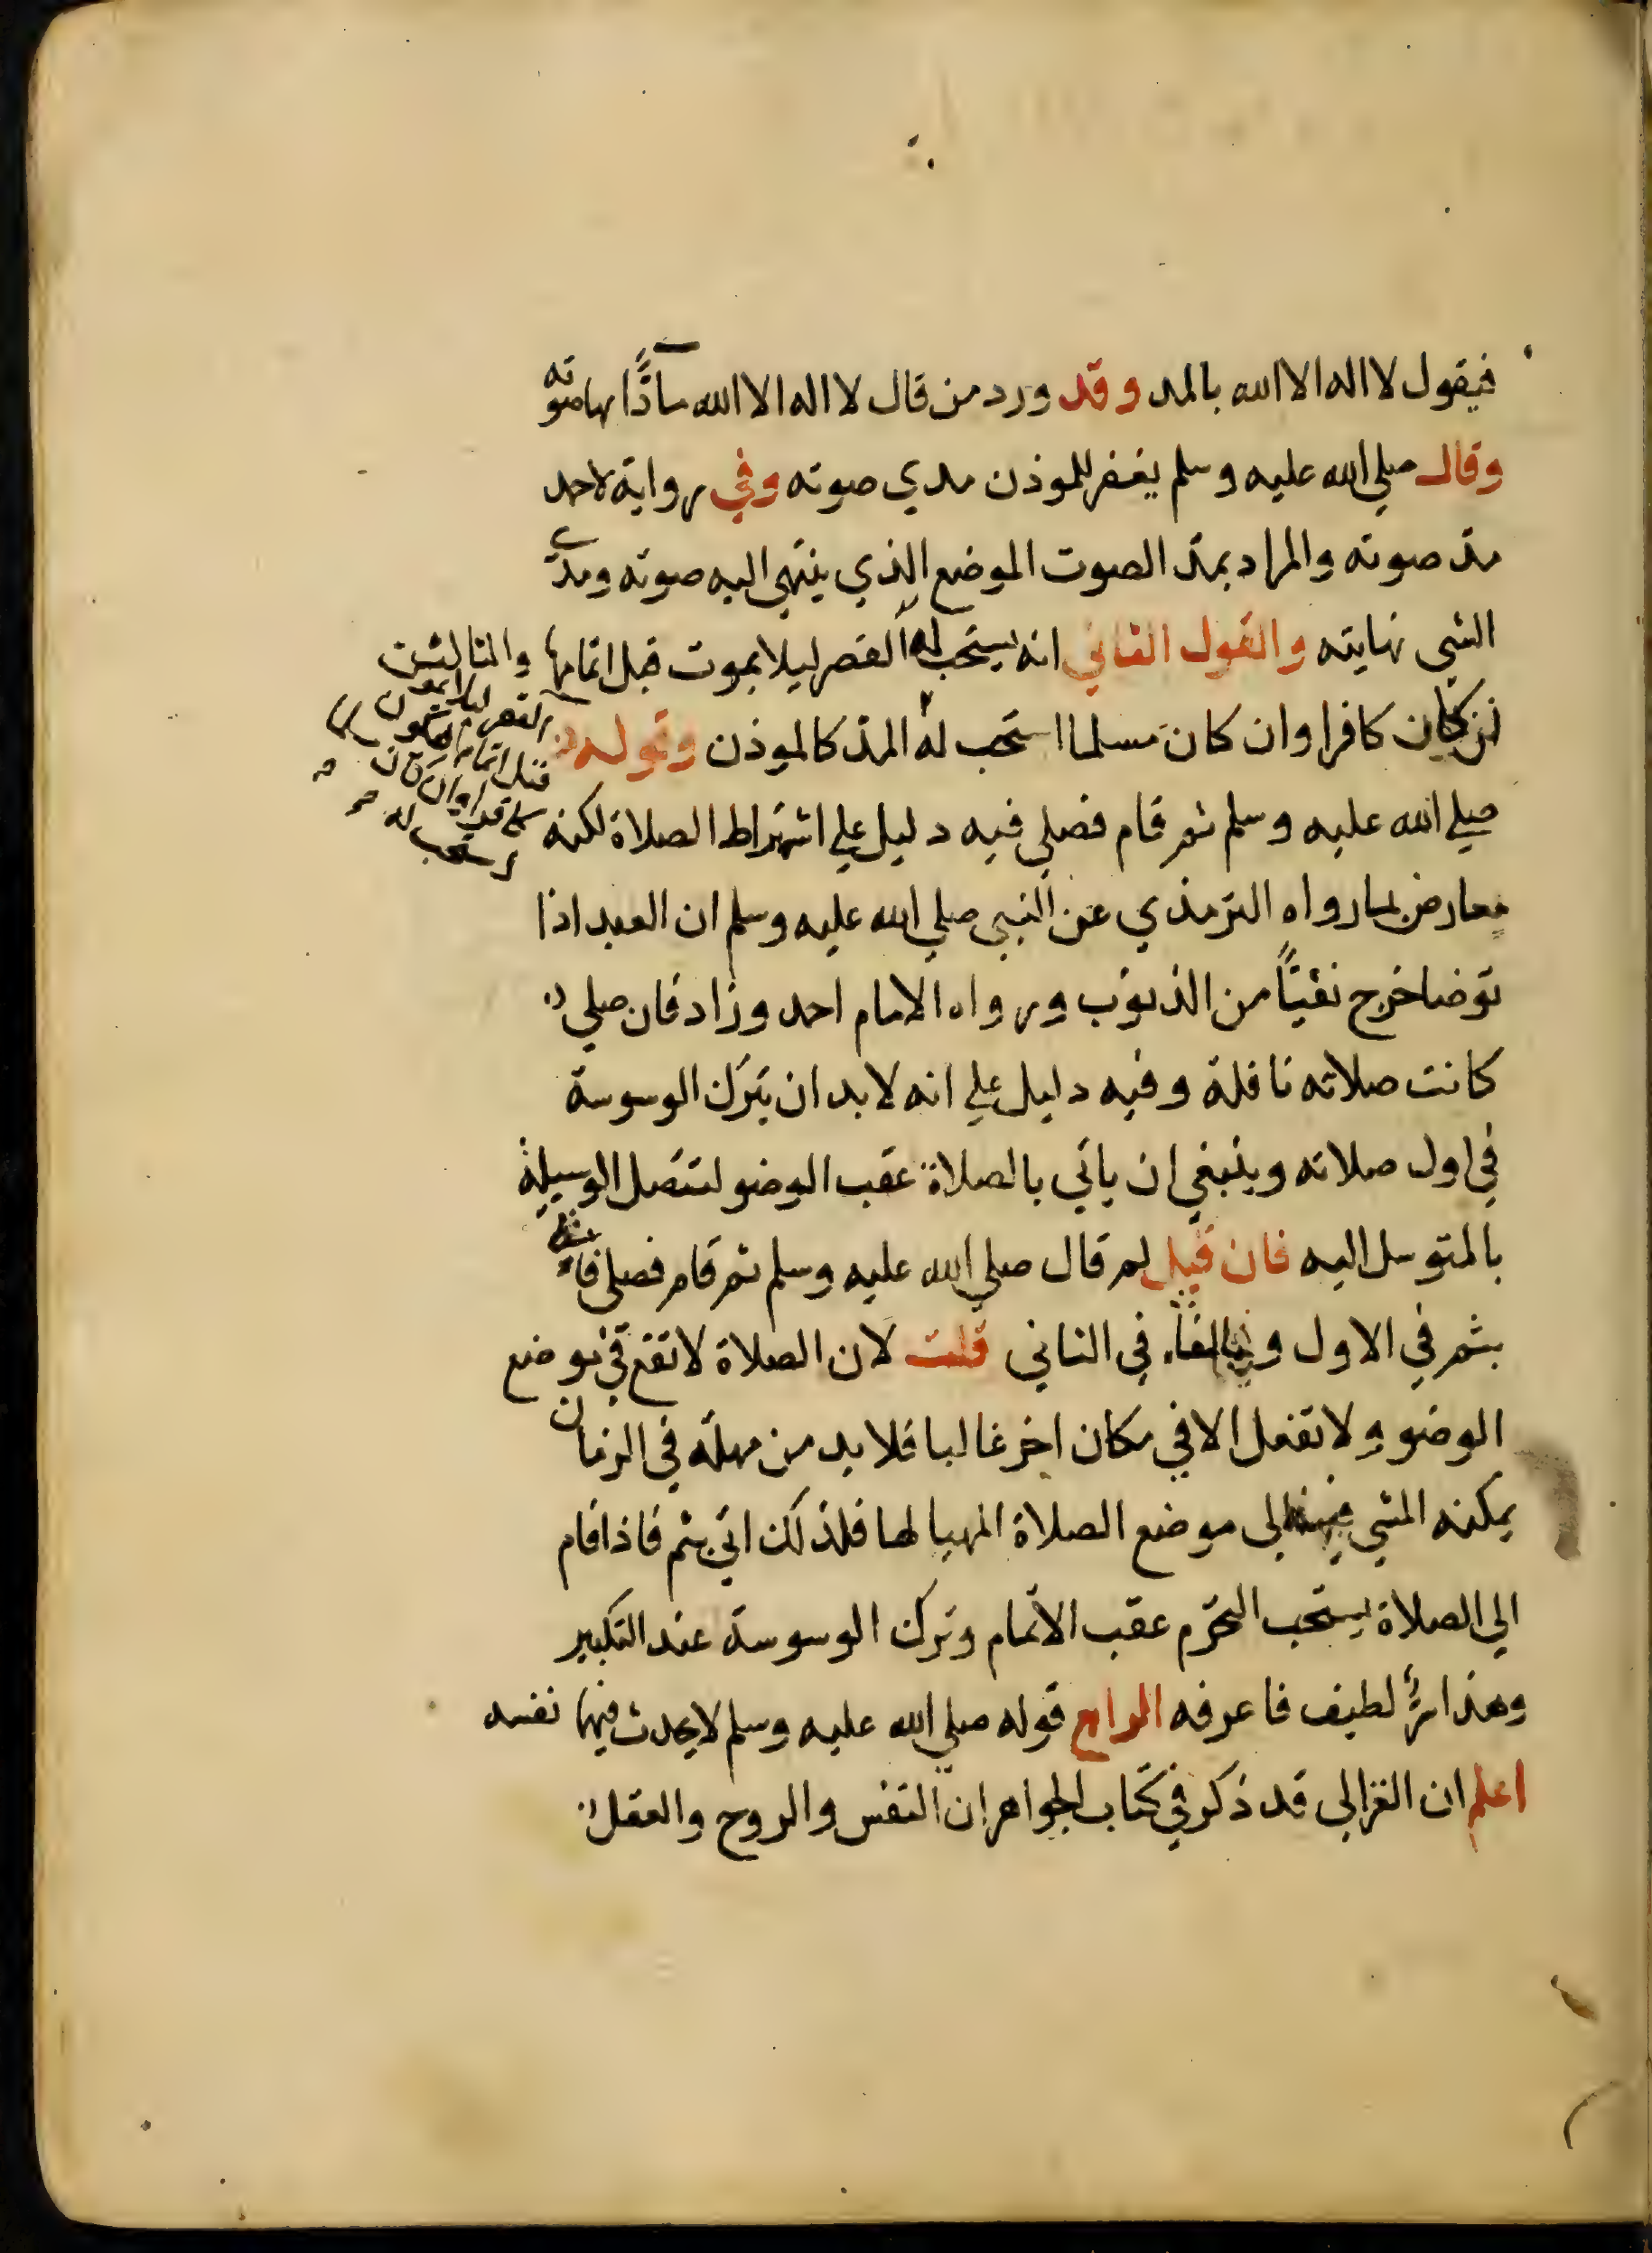 فيقول لا اله الا الله بالمد وقد ورد من قال لا اله الا الله مادًّا بها صوته
وقال صلي الله عليه وسلم يغفر للموذن مدي صوته وفي رواية لاحمد
مد صوته والمراد بمد الصوت الموضع الذي ينتهي اليه صوته ومدي
الشي نهايته والقول الثاني انه يستحب له القصر ليلا يموت قبل اتمامها والثالث
كان كافرا وان كان مسلما استحب له المد كالموذن وقوله
صلي الله عليه وسلم ثم قام فصلي فيه دليل علي اشتراط الصلاة لكنه
معارض بما رواه الترمذي عن النبي صلي الله عليه وسلم ان العبد اذا
توضا خرج نقيًّا من الذنوب ورواه الامام احمد وزاد فان صلي
كانت صلاته نافلة وفيه دليل علي انه لابد ان يترك الوسوسة
في اول صلاته وينبغي ان ياتي بالصلاة عقب الوضو لتتصل الوسيلة
بالمتوسل اليه فان قيل لم قال صلي الله عليه وسلم ثم قام فصلي فاتي
بثم في الاول وبالفاء في الثاني قلت لان الصلاة لا تقع في موضع
الوضو ولا تفعل الا في مكان اخر غالبا فلابد من مهلة في الزمان
يمكنه المشي فيها الى موضع الصلاة المهيا لها فلذلك اتي بثم فاذا قام
الي الصلاة يستحب التحرم عقب الاتمام وترك الوسوسة عند التكبير
وهذا سرٌّ لطيف فاعرفه الرابع قوله صلي الله عليه وسلم لا يحدث فيهما نفسه
اعلم ان الغزالي قد ذكر في كتاب الجواهر ان النفس والروح والعقل
القصر ليلا يموت
قبل اتمامها